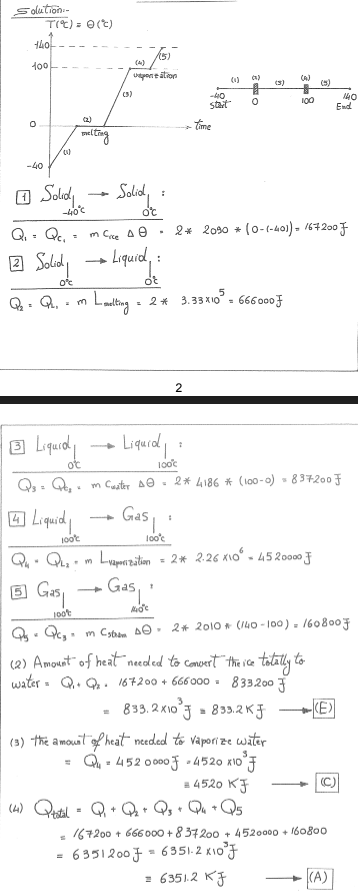 Solution:-
T(°C) = Θ(°C)
140
100
0
-40
(1)
(2)
melting
(3)
(4)
vaporization
(5)
time
(1) (2) (3) (4) (5)
-40 0 100 140
Start End
1 Solid -40°C → Solid 0°C :
Q1 = QC1 = m Cice ΔΘ = 2 * 2090 * (0-(-40)) = 167200 J
2 Solid 0°C → Liquid 0°C :
Q2 = QL1 = m Lmelting = 2 * 3.33x10^5 = 666000 J
2
3 Liquid 0°C → Liquid 100°C :
Q3 = QC2 = m Cwater ΔΘ = 2 * 4186 * (100-0) = 837200 J
4 Liquid 100°C → Gas 100°C :
Q4 = QL2 = m Lvaporization = 2 * 2.26 x10^6 = 4520000 J
5 Gas 100°C → Gas 140°C :
Q5 = QC3 = m Csteam ΔΘ = 2 * 2010 * (140-100) = 160800 J
(2) Amount of heat needed to convert the ice totally to
water = Q1 + Q2 = 167200 + 666000 = 833200 J
= 833.2x10^3 J = 833.2 KJ → (E)
(3) the amount of heat needed to vaporize water
= Q4 = 4520000 J = 4520 x10^3 J
= 4520 KJ → (C)
(4) Qtotal = Q1 + Q2 + Q3 + Q4 + Q5
= 167200 + 666000 + 837200 + 4520000 + 160800
= 6351200 J = 6351.2 x10^3 J
= 6351.2 KJ → (A)